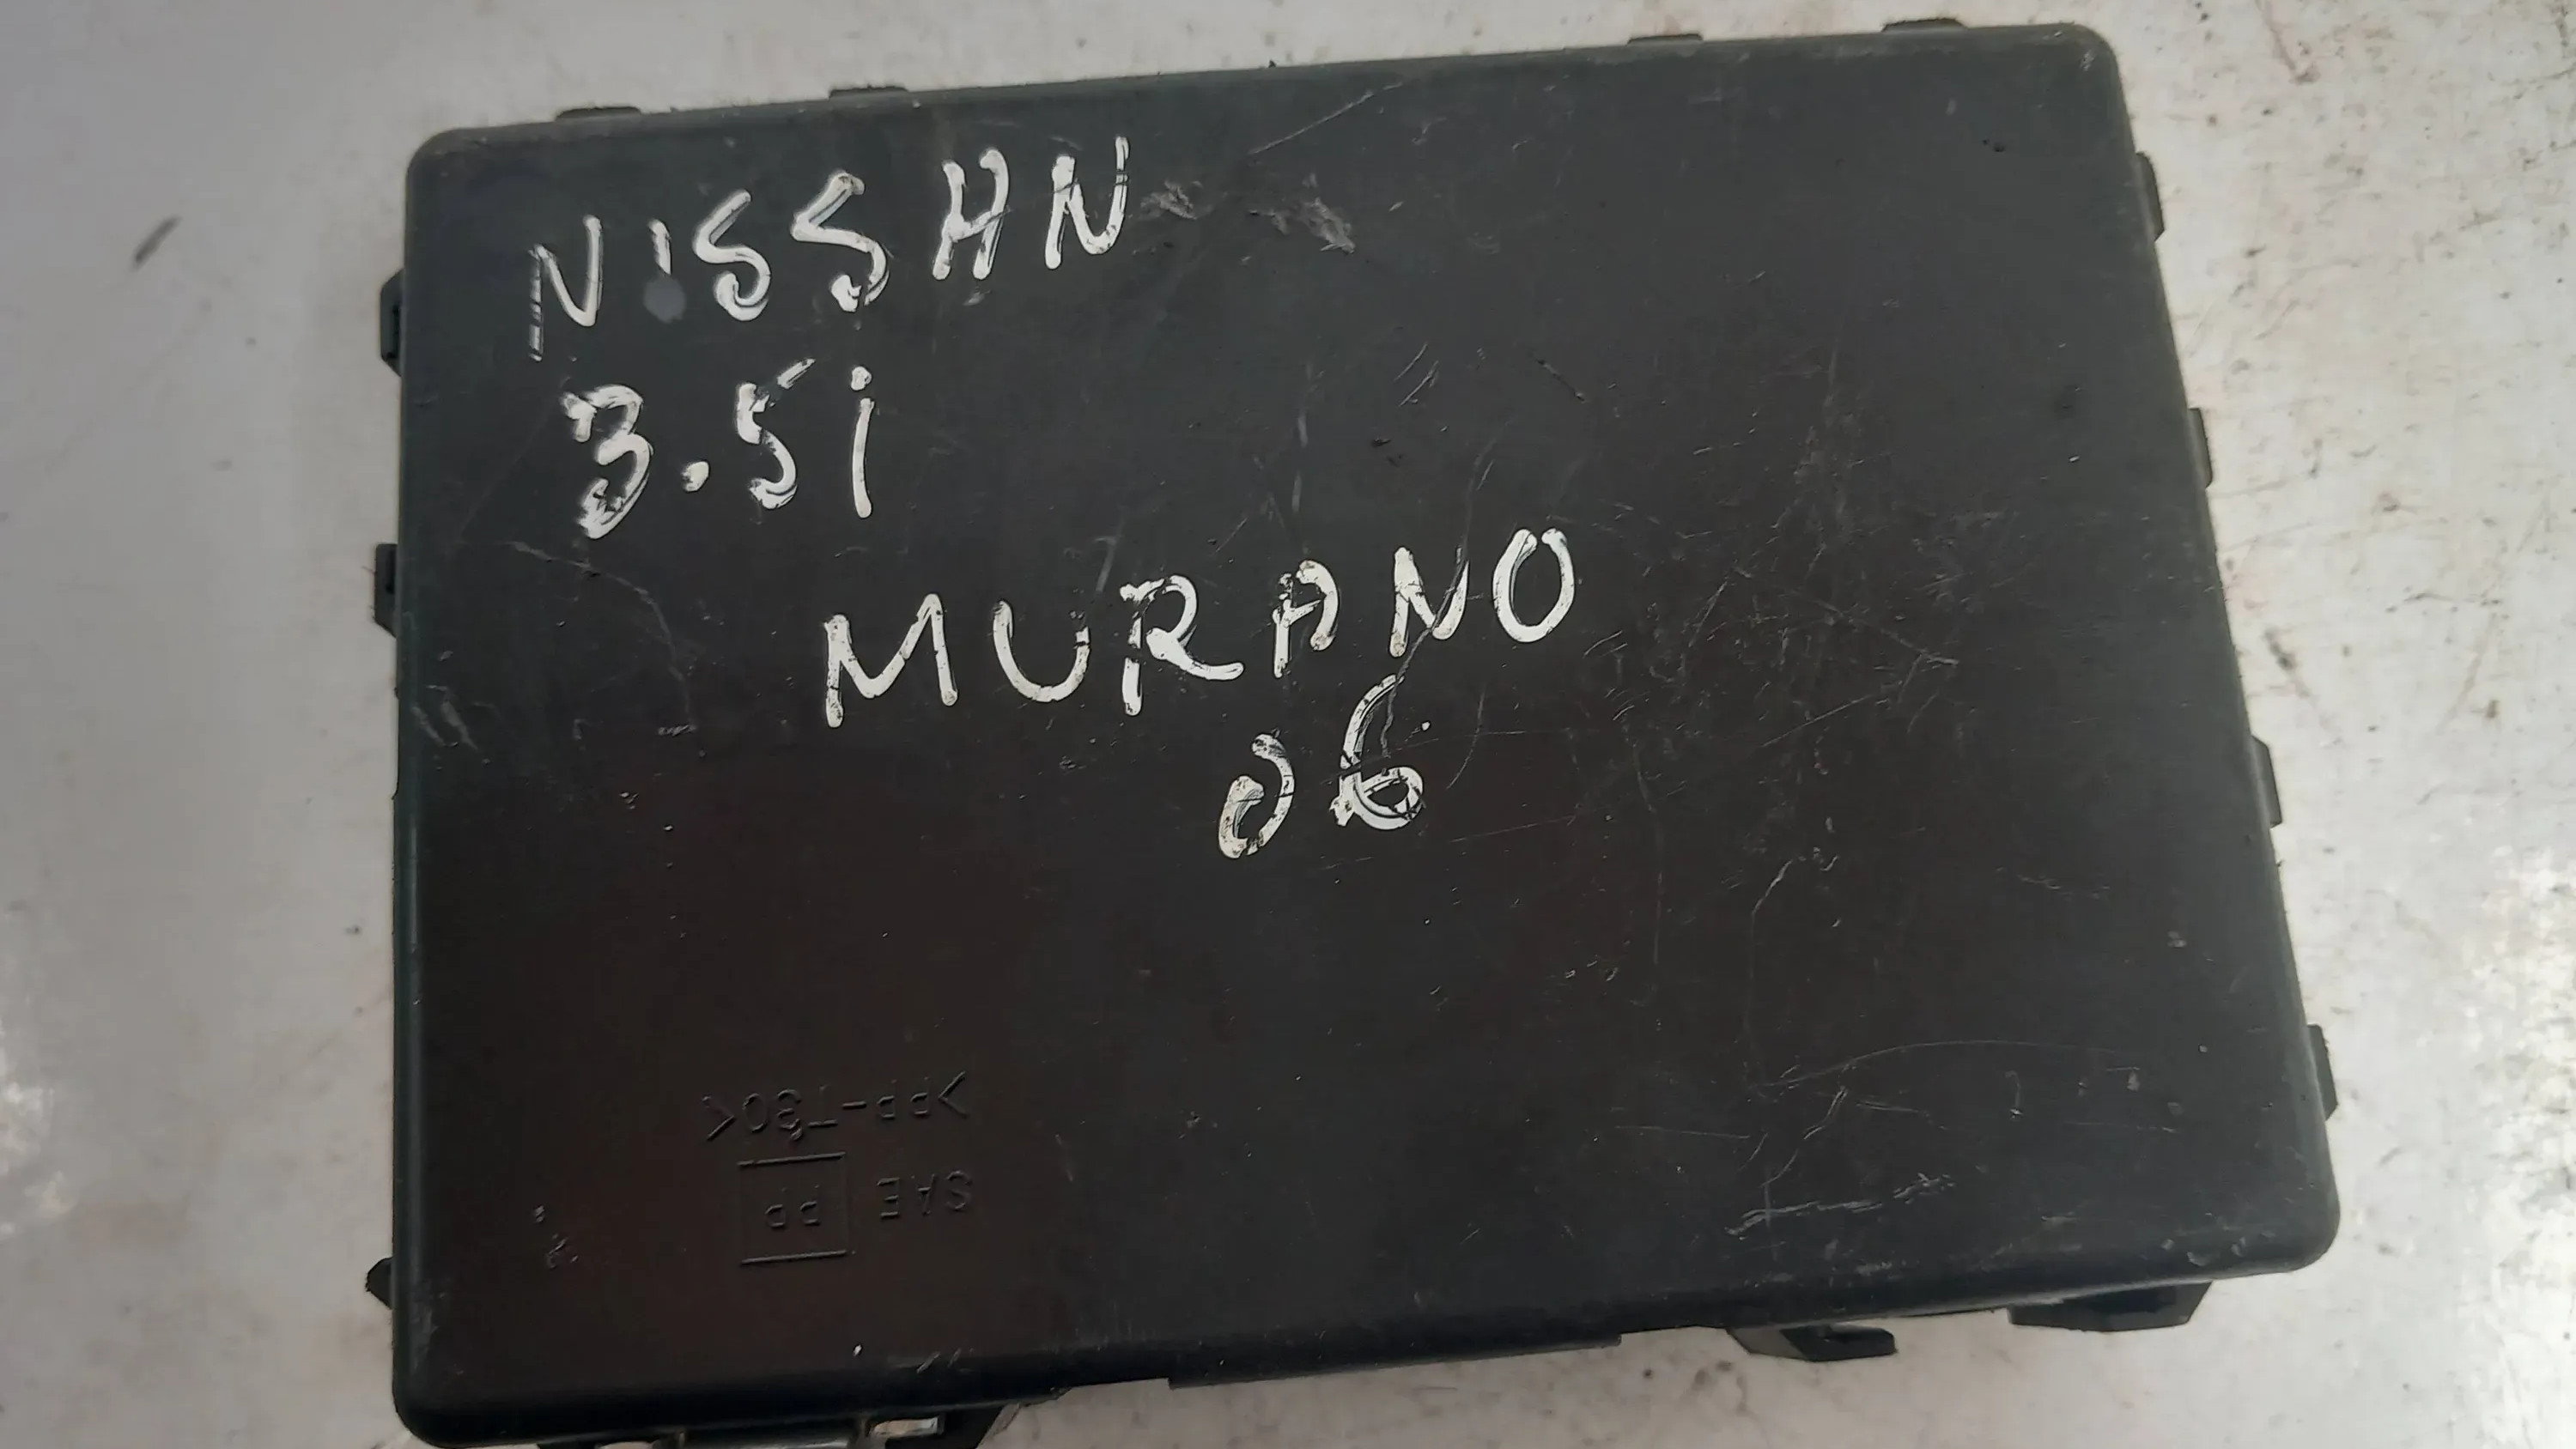 NISSAN
3.5i
MURANO
06
>PP-T30<
SAE PP